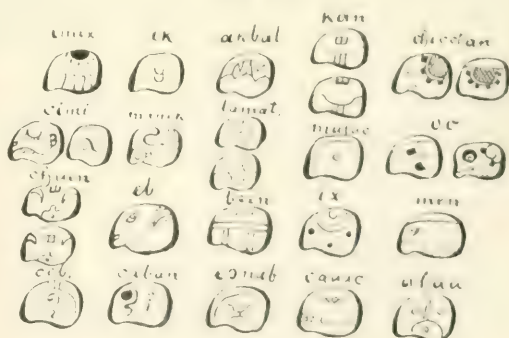 imix ik akbal kan chicchan
cimi manik lamat muluc oc
chuen eb been ix men
cib caban eznab cauac ahau